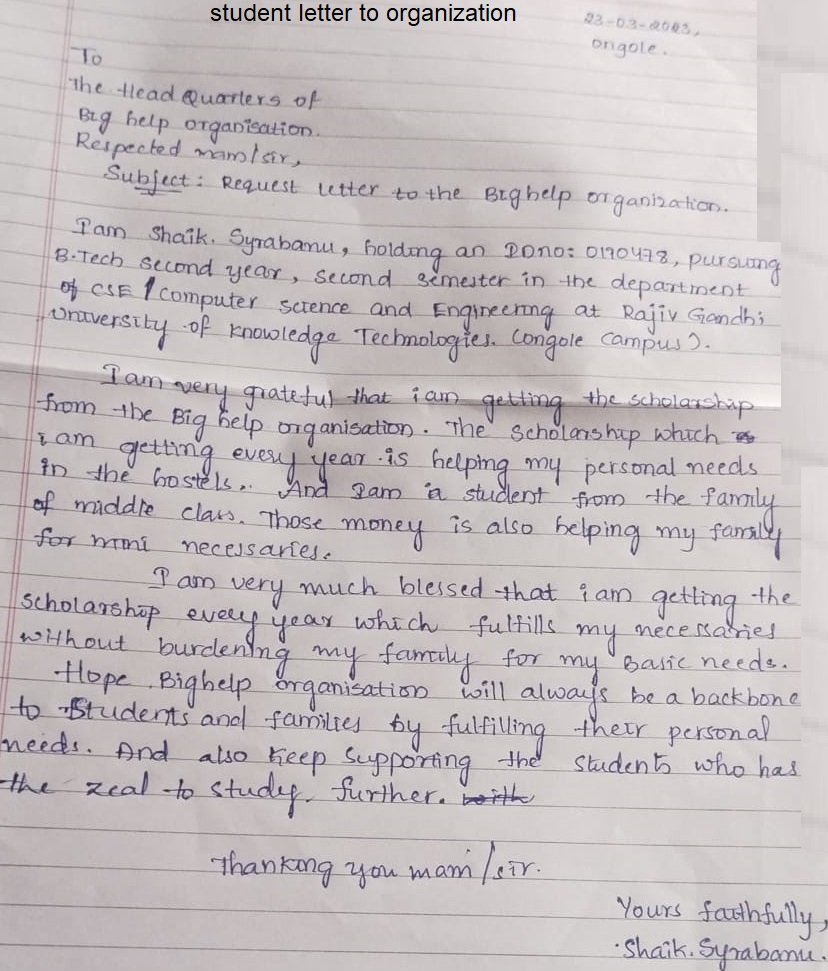 student letter to organization
23-03-2023,
ongole.
To
The Head Quarters of
Big help organisation.
Respected mam/sir,
Subject: Request letter to the Big help organization.
I am Shaik. Syrabanu, holding an IDno: 0190478, pursuing
B.Tech second year, second semester in the department
of CSE / computer science and Engineering at Rajiv Gandhi
University of Knowledge Technologies. (ongole campus).
I am very grateful that i am getting the scholarship
from the Big help organisation. The scholarship which
i am getting every year is helping my personal needs
in the hostels. And I am a student from the family
of middle class. Those money is also helping my family
for mini necessaries.
I am very much blessed that i am getting the
scholarship every year which fulfills my necessaries
without burdening my family for my Basic needs.
Hope Bighelp organisation will always be a backbone
to students and families by fulfilling their personal
needs. And also keep supporting the students who has
the zeal to study further. with
Thanking you mam/sir.
Yours faithfully,
Shaik. Syrabanu.